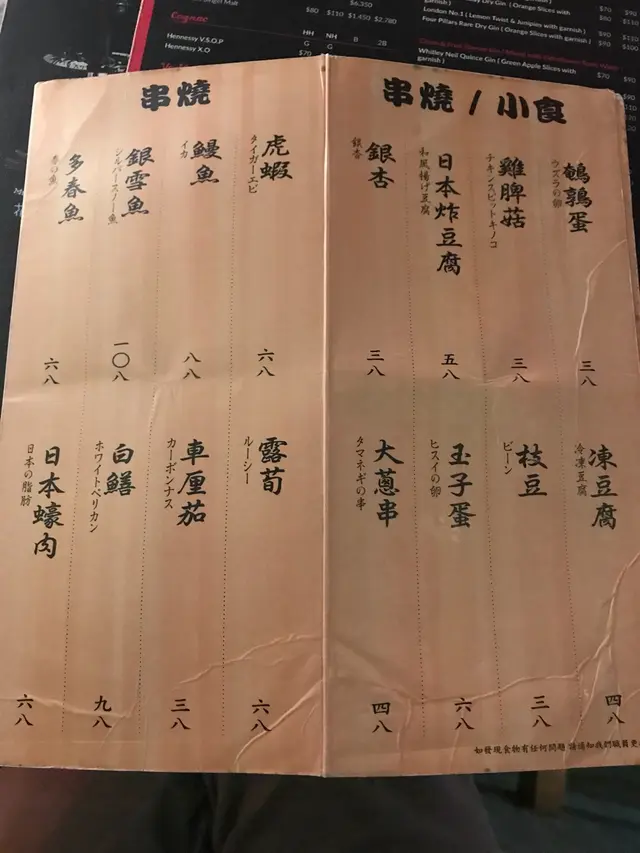 Cognac
$80 $110 $1,450 $2,780
HH NH B 2B
Hennessy V.S.O.P
G G
Hennessy X.O
London No.1 ( Lemon Twist & Junipies with garnish )
Four Pillars Rare Dry Gin ( Orange Slices with garnish )
Whitley Neil Quince Gin ( Green Apple Slices with garnish )
串燒 / 小食
鵪鶉蛋
ウズラの卵
三八
雞脾菇
チキンスピットキノコ
三八
日本炸豆腐
和風揚げ豆腐
五八
銀杏
銀杏
三八
凍豆腐
冷凍豆腐
四八
枝豆
ビーン
三八
玉子蛋
ヒスイの卵
六八
大蔥串
タマネギの串
四八
如發現食物有任何問題 請通知我們職員更
串燒
虎蝦
タイガーエビ
六八
鰻魚
イカ
八八
銀雪魚
シルバースノー魚
一〇八
多春魚
春の魚
六八
露荀
ルーシー
六八
車厘茄
カーボンナス
三八
白鱔
ホワイトペリカン
九八
日本蠔肉
日本の脂肪
六八